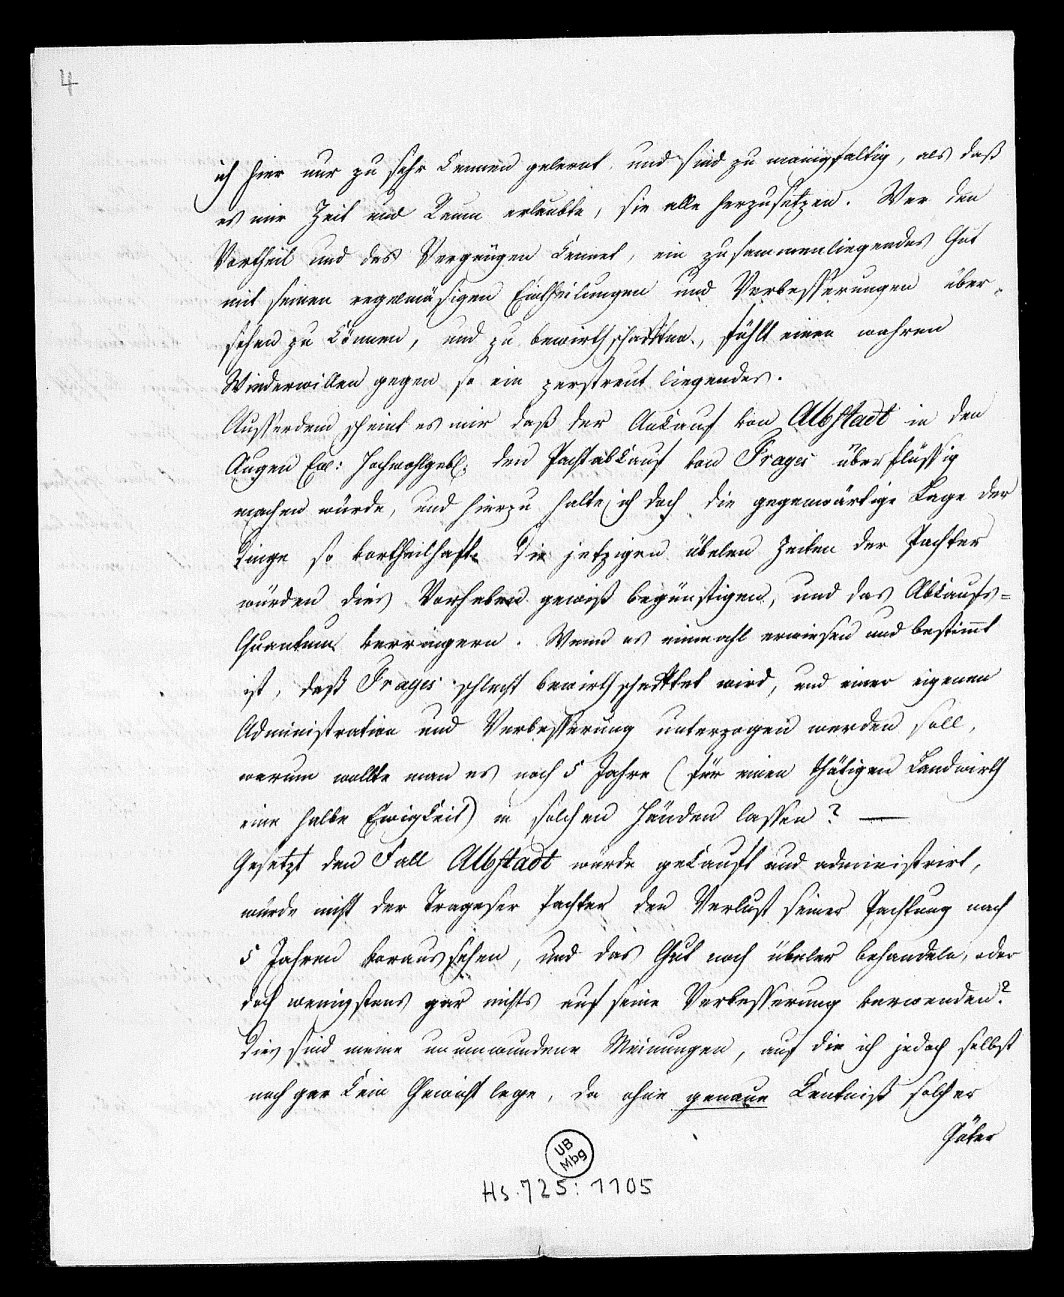 4
ich hier nur zu sehr kennen gelernt, und sind zu manigfaltig, als daß
es mir Zeit und Raum erlaubte, sie alle herzusetzen. Wer den
Vortheil und das Vergnügen kennet, ein zusammenliegendes Gut
mit seinen regelmäsigen Eintheilungen und Verbesserungen über-
sehen zu können, und zu bewirthschaften, fühlt einen wahren
Wiederwillen gegen so ein zerstreut liegendes.
Ausserdem scheint es mir daß der Ankauf von Albstadt in den
Augen Ew: Hochwohlgebl: den Pachtabkauf von Trages überflüssig
machen würde, und hierzu halte ich doch die gegenwärtige Lage der
Dinge so vortheilhaft. Die jetzigen übelen Zeiten der Pachter
würden dies Vorhaben gewiß begünstigen, und das Abkaufs=
Quantum verringern. Wenn es einmahl erwiesen und bestimmt
ist, daß Trages schlecht bewirthschaftet wird, und einer eigenen
Administration und Verbesserung unterzogen werden soll,
warum wollte man es noch 5 Jahre (für einen thätigen Landwirth
eine halbe Ewigkeit) in solchen Händen lassen? —
Gesetzt den Fall Albstadt würde gekauft und administrirt,
würde nicht der Trageser Pachter den Verlust seiner Pachtung nach
5 Jahren voraussehen, und das Gut noch übeler behandeln, oder
doch wenigstens gar nichts auf seine Verbesserung verwenden?
Dies sind meine unumwundene Meinungen, auf die ich jedoch selbst
noch gar kein Gewicht lege, da ohne genaue Kentniß solcher
Güter
UB
Mbg
Hs. 725: 1105